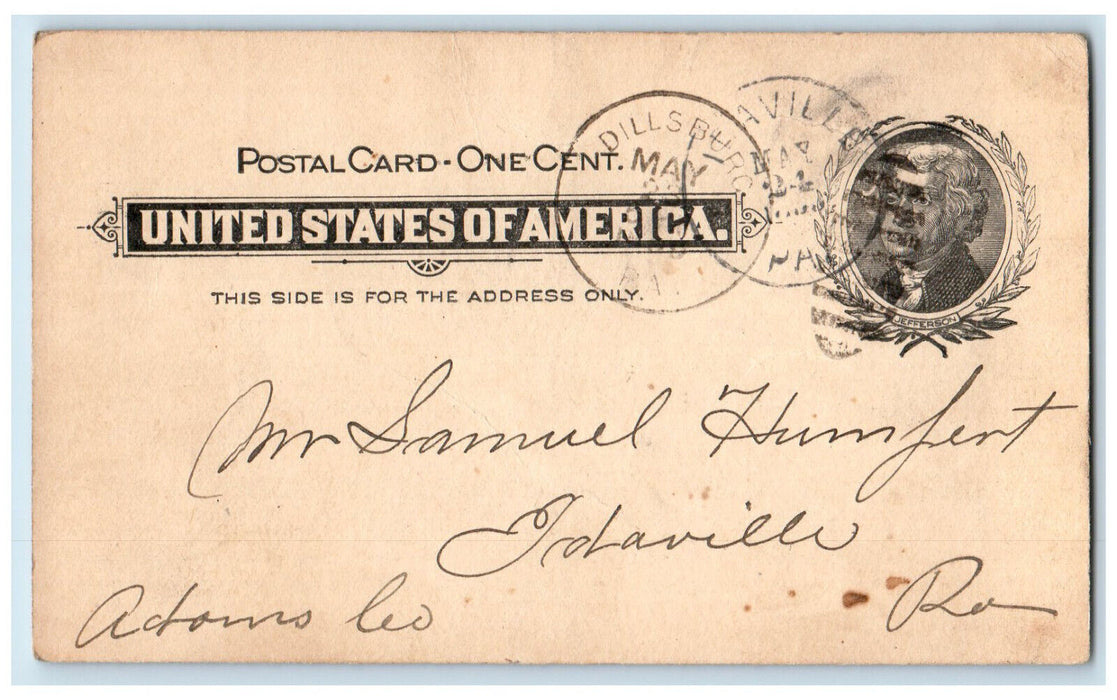 POSTAL CARD - ONE CENT.
UNITED STATES OF AMERICA.
THIS SIDE IS FOR THE ADDRESS ONLY.
DILLSBURG
MAY
PA.
AVILLE
MAY
24
PA
JEFFERSON
Mr Samuel Humfert
Idaville
Adams Co
Pa